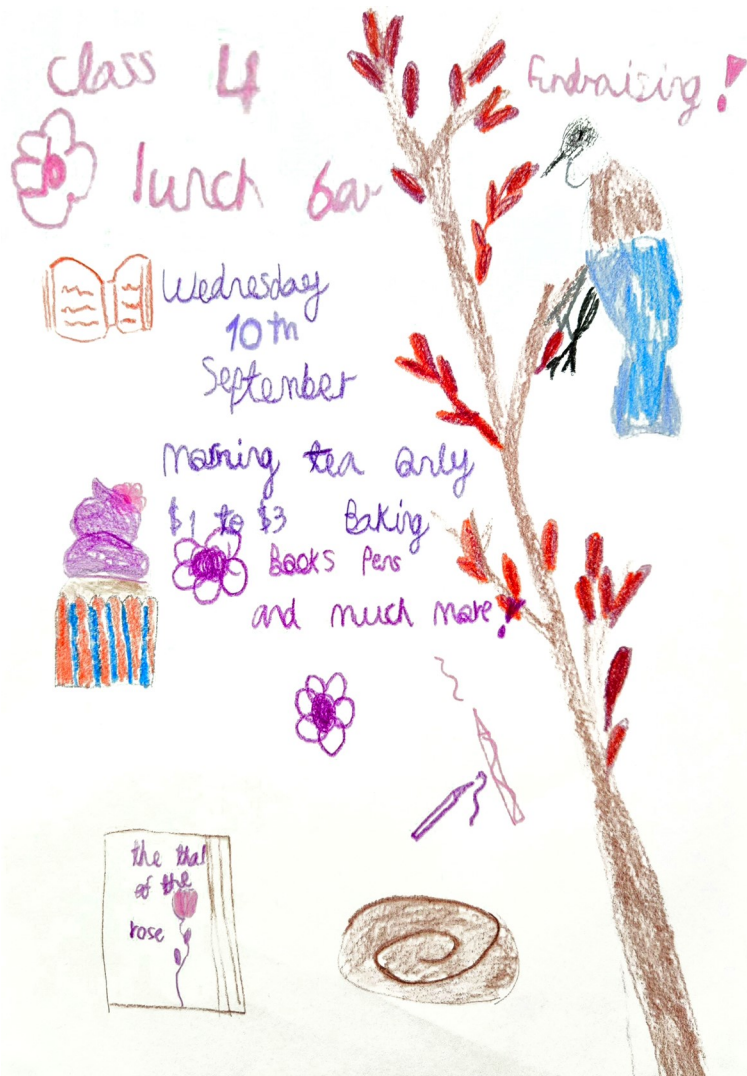 Class 4
Fundraising!
lunch bar
Wednesday
10th
September
Morning tea only
$1 to $3 Baking
Books Pens
and much more!
the
of the
rose